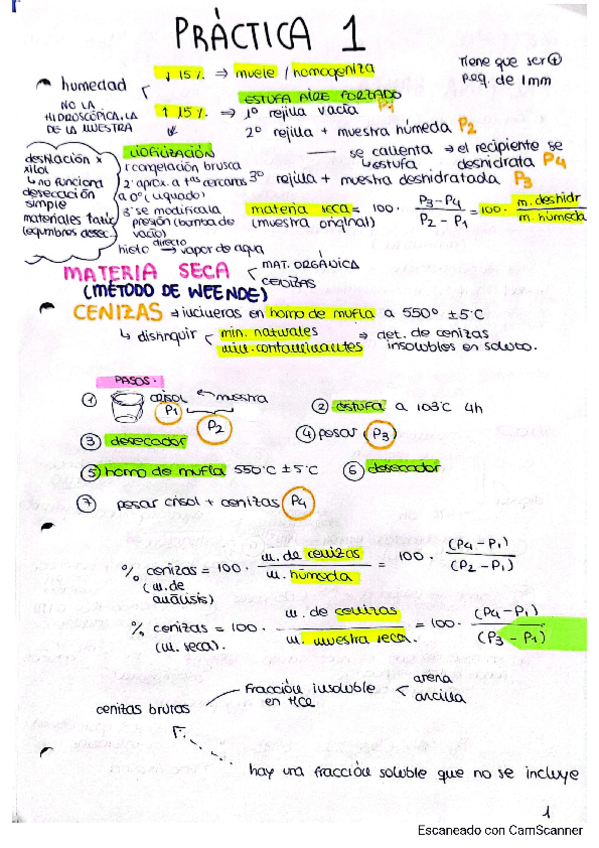 PRÀCTICA 1
humedad
↓ 15% ⇒ muele / homogeniza
Tiene que ser ⊕
peq. de 1mm
NO LA
HIDROSCÓPICA, LA
DE LA MUESTRA
ESTUFA AIRE FORZADO
↑ 15% ⇒ 1º rejilla vacía P1
2º rejilla + muestra húmeda P2
se calienta ⇒ el recipiente se
↳ estufa deshidrata P4
3º rejilla + muestra deshidratada P3
LIOFILIZACIÓN
1º congelación brusca
a 0º (líquido)
3º se modifica la
presión (bomba de
vacío)
hielo directo→ vapor de agua
destilación x
xilol
↳ no funciona
desecación
simple
materiales
materia seca = 100 · P3-P4 / P2-P1 = 100 · m. deshidr / m. húmeda
(muestra original)
MATERIA SECA
MAT. ORGÁNICA
CENIZAS
(MÉTODO DE WEENDE)
CENIZAS ⇒ en horno de mufla a 550º ±5ºC
↳ distinguir
min. naturales
min. contaminantes
⇒ det. de cenizas
insolubles en
PASOS.
① crisol ← muestra
P1
P2
② estufa a 103ºC 4h
③ desecador
④ pesar P3
⑤ horno de mufla 550ºC ±5ºC
⑥ desecador
⑦ pesar crisol + cenizas P4
% cenizas = 100 · m. de cenizas / m. húmeda = 100 · (P4-P1) / (P2-P1)
(m. de
análisis)
% cenizas = 100 · m. de cenizas / m. muestra seca. = 100 · (P4-P1) / (P3-P1)
(m. seca).
cenizas brutas
Fracción insoluble
en HCl
arena
arcilla
hay una fracción soluble que no se incluye
1
Escaneado con CamScanner